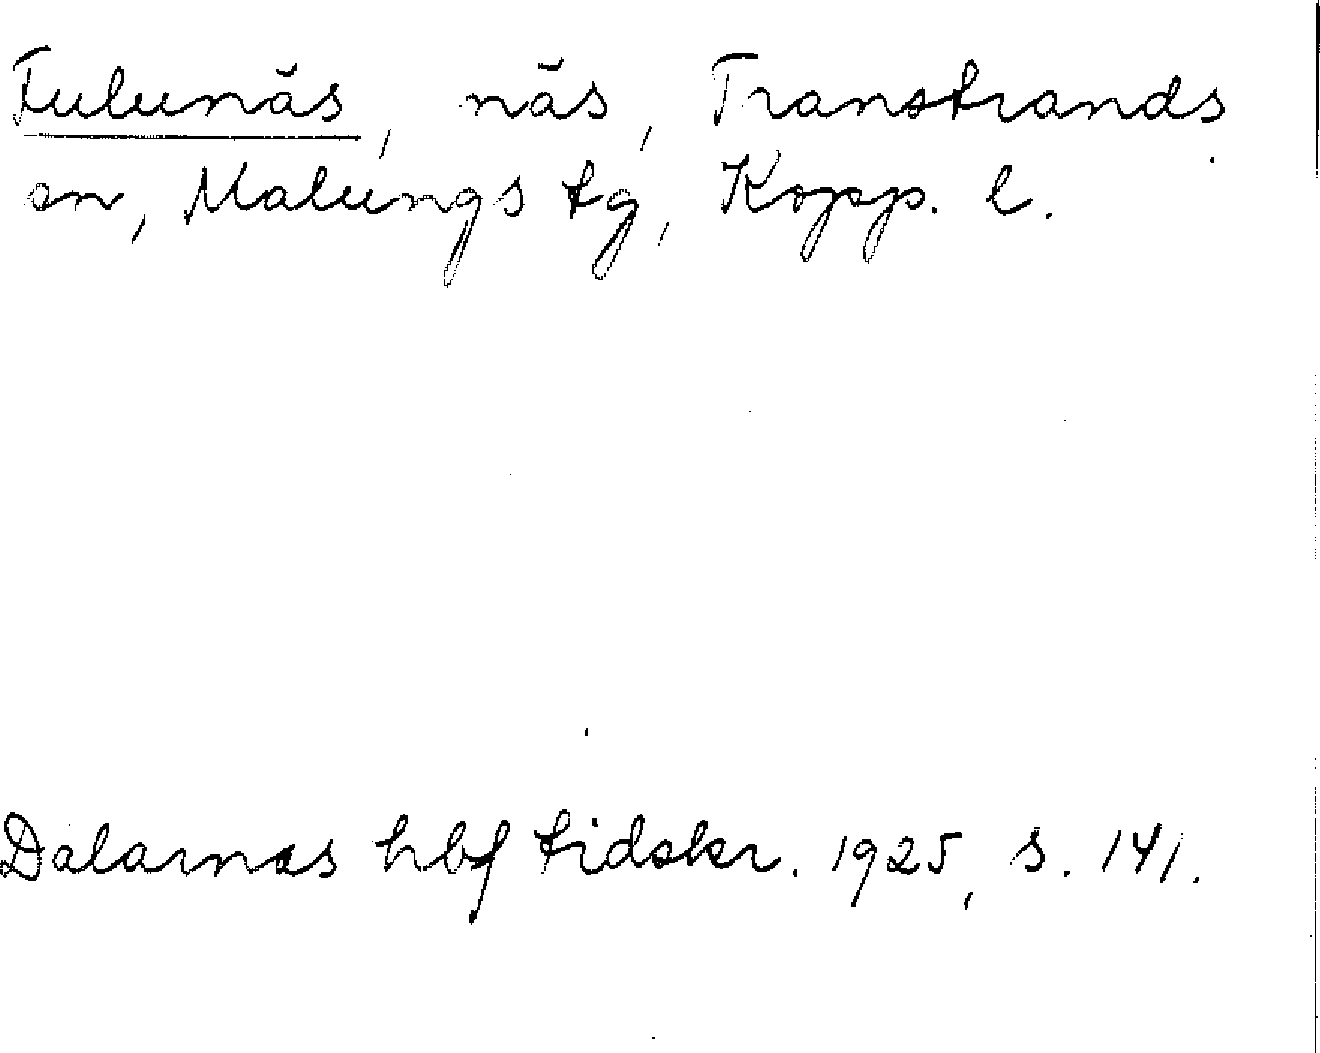 Fulunäs, näs, Transtrands
sn, Malungs tg, Kopp. l.
Dalarnas hbf tidskr. 1925, s. 141.